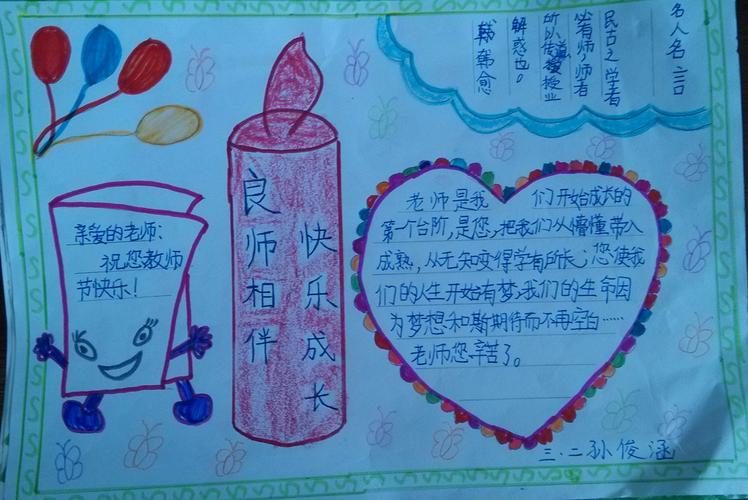 名人名言
民古之学者
必有师,师者
所以传道授业
解惑也。
韩愈
良师相伴
快乐成长
亲爱的老师:
祝您教师
节快乐!
老师是我们开始成长的
第一个台阶,是您,把我们从懵懂带入
成熟,从无知变得学有所长;您使我
们的人生开始有梦,我们的生命因
为梦想和期待而不再空白……
老师您辛苦了。
三.二孙俊涵